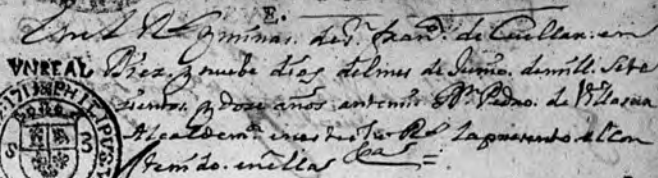 E.
En el Rl y minas. de S. Franco. de Cuellar. en
VN REAL Diez. y nuebe dias del mes de Junio. de mill. Sete
sientos. y dose años. antemi Dn. Pedro. de Villasur
Alcalde mr. en este dho Rl. la presento. el con
tenido. en ella
1713 PHILIPVS
S 3